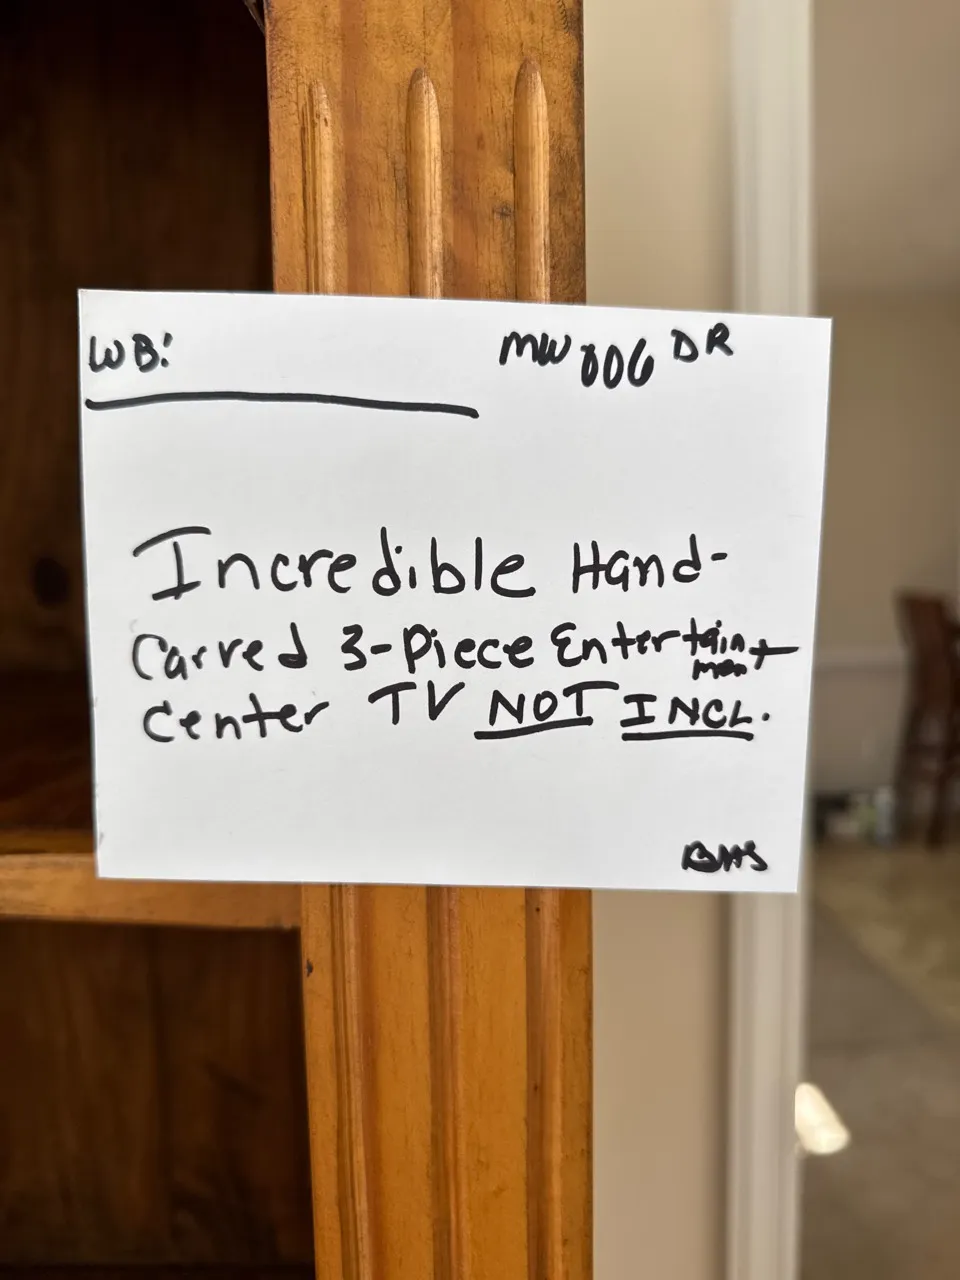 WB: MW 006 DR
Incredible Hand-
Carved 3-Piece Entertainment
Center TV NOT INCL.